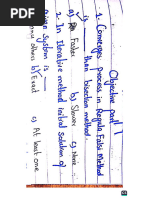 Objective part
1- Converges process in Regula Falsi Method
is ______ than bisection method.
a) Faster b) Slower c) None
2- In Iterative method initial solution of
given system is
b) Exact c) At least one